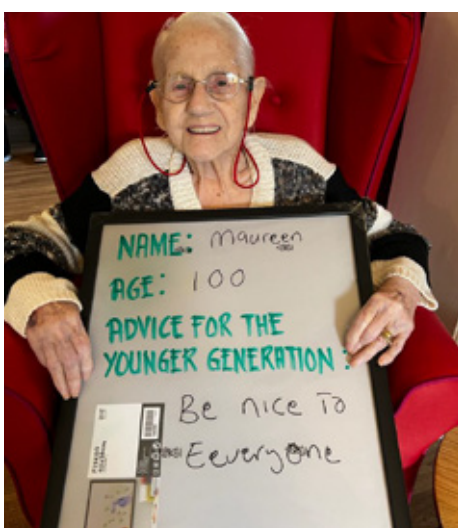 NAME: Maureen
AGE: 100
ADVICE FOR THE
YOUNGER GENERATION:
Be nice To
Eeveryone